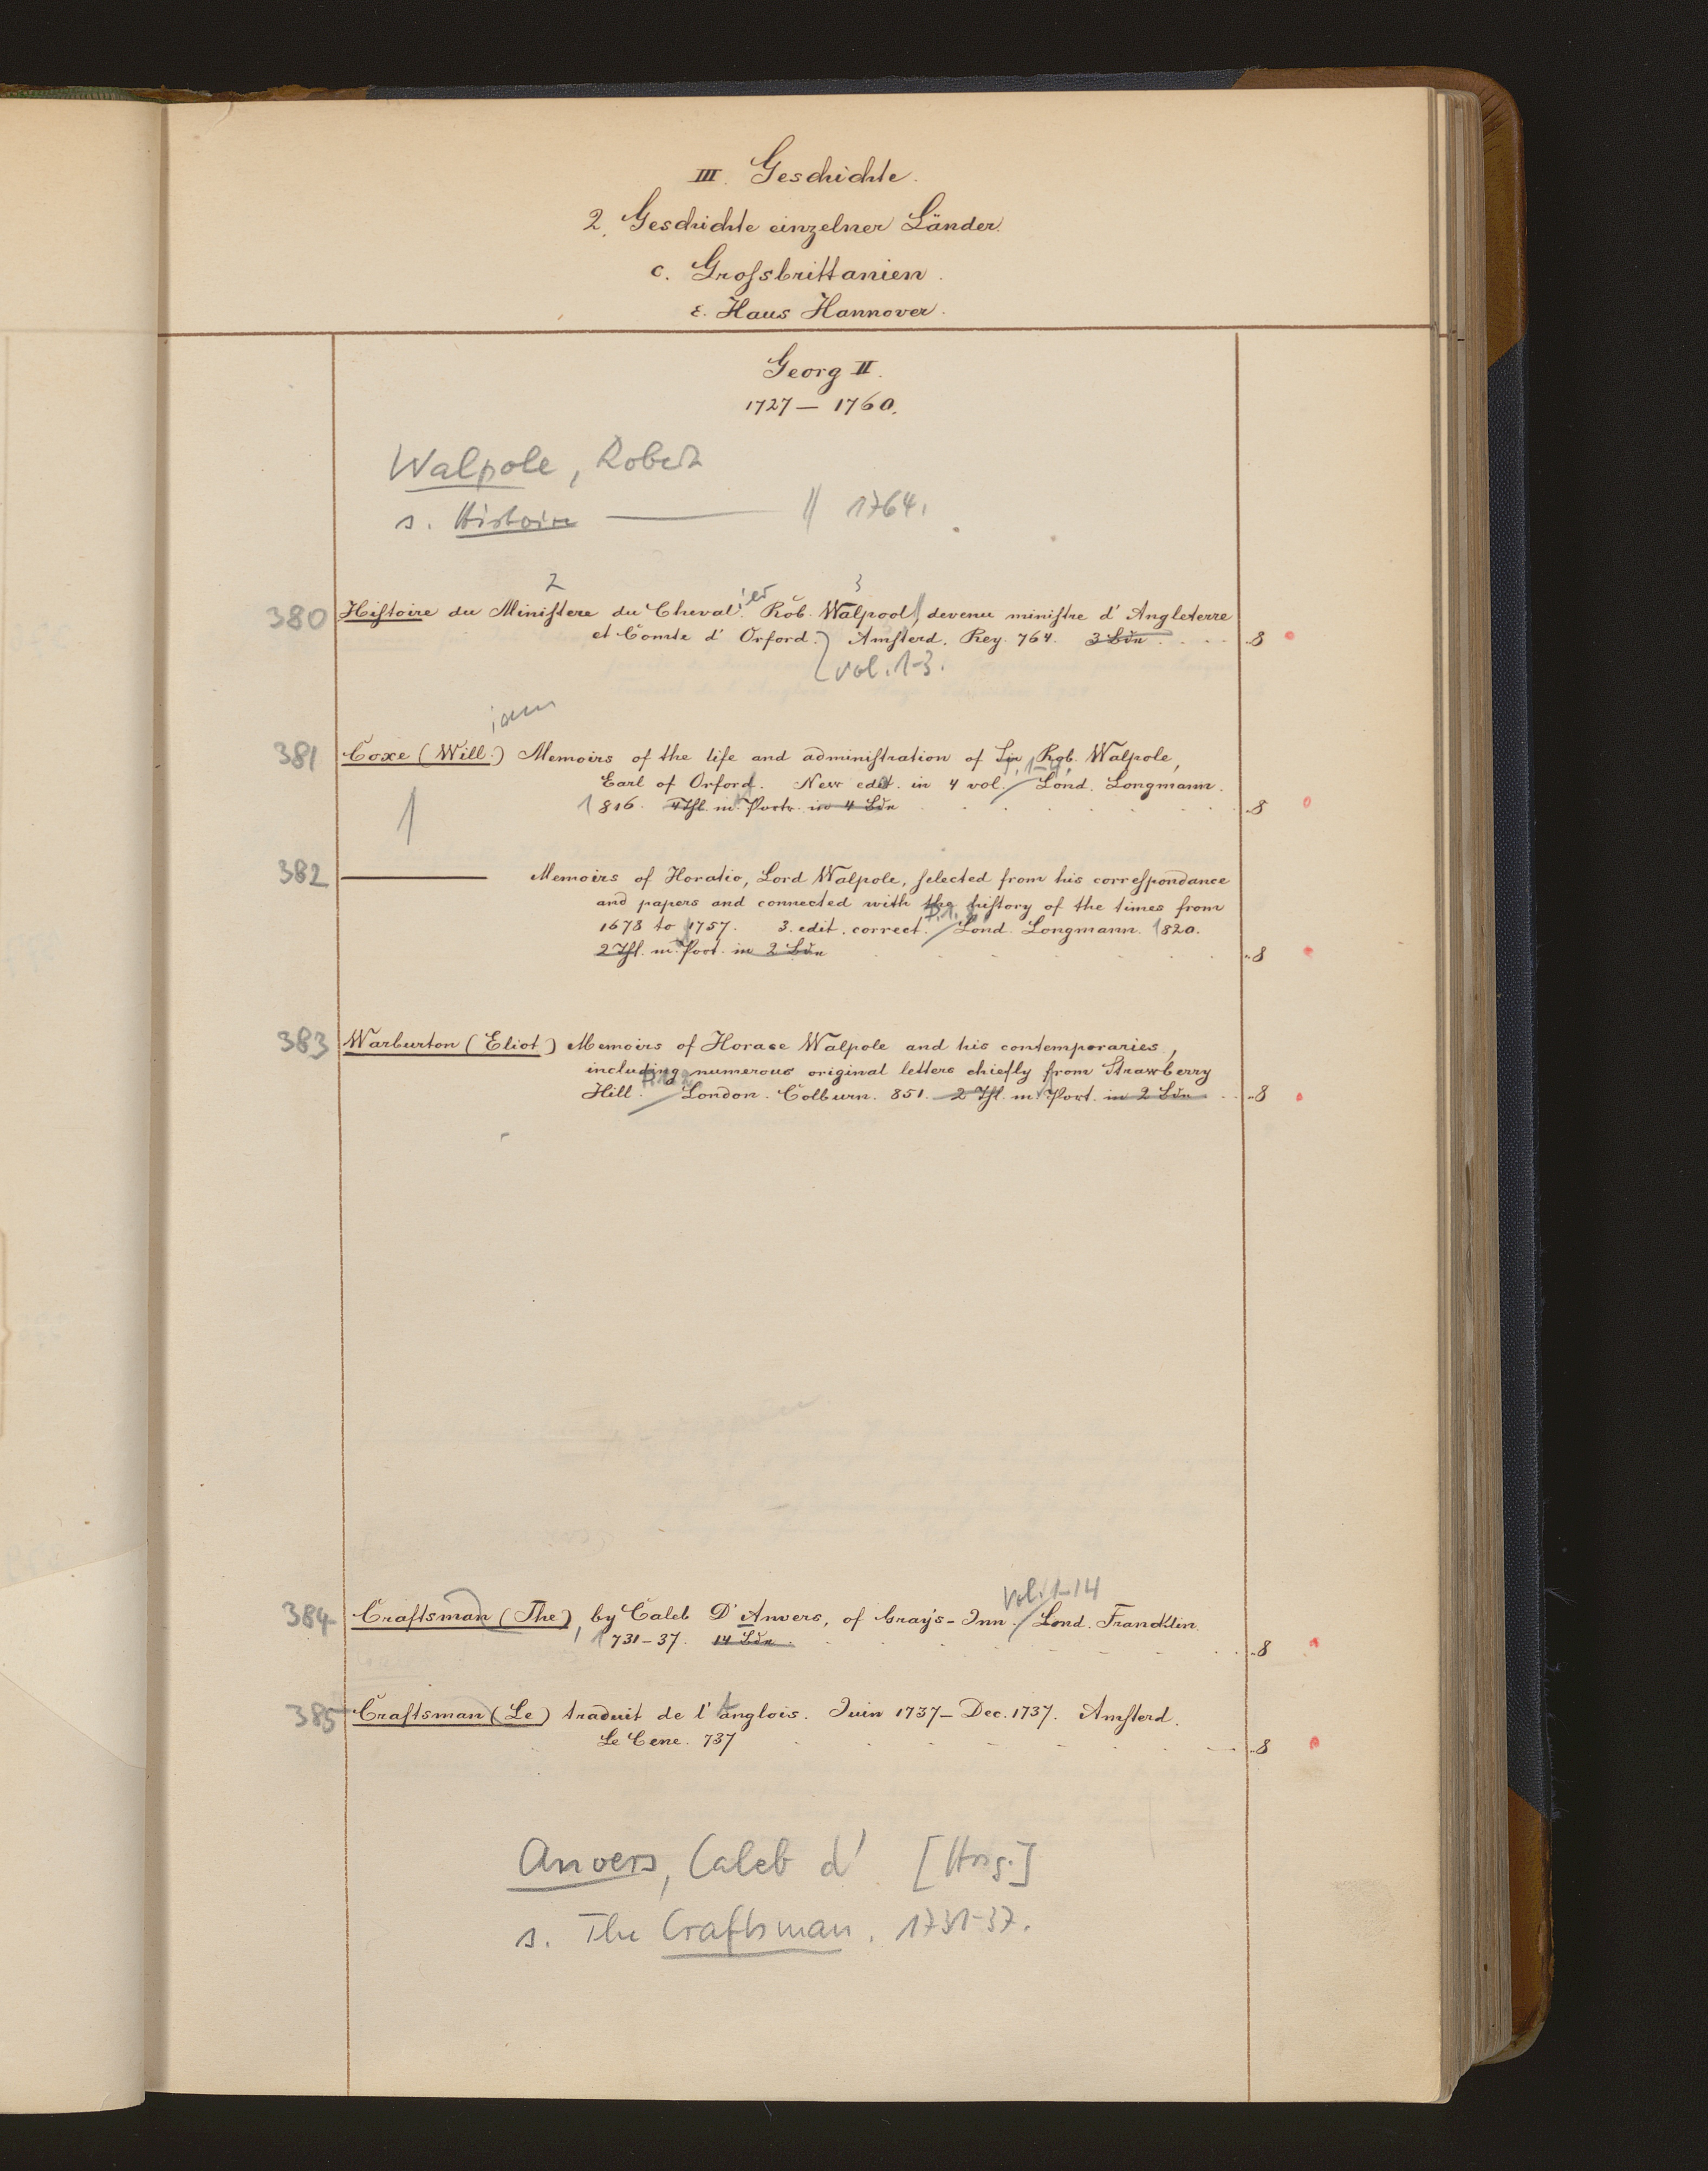 III. Geschichte.
2. Geschichte einzelner Länder.
c. Grosſsbrittanien.
ε. Haus Hannover.
Georg II.
1727 — 1760.
Walpole, Robert
s. Histoire ——— // 1764.
2 3
380 Hiſtoire du Miniſtere du Cheval.ier Rob. Walpool, devenu miniſtre d' Angleterre
et Comte d' Orford. Amſterd. Rey. 764. 3 Bdn 8
vol. 1-3.
iam
381 Coxe (Will.) Memoirs of the life and adminiſtration of Sir Rob. Walpole,
Earl of Orford. New edit. in 4 vol. Lond. Longmann.
1816. 4 Thl. m. Portr. in 4 Bdn 8
1
382 ——— Memoirs of Horatio, Lord Walpole, ſelected from his correſpondance
and papers and connected with the hiſtory of the times from
1678 to 1757. 3. edit. correct. Lond. Longmann. 1820.
2 Thl. m. Port. in 2 Bdn 8
383 Warburton (Eliot) Memoirs of Horace Walpole and his contemporaries,
including numerous original letters chiefly from Strawberry
Hill. London. Colburn. 851. 2 Thl. m. Port. in 2 Bdn 8
Vol. 1-14
384 Craftsman (The), by Caleb D'Anvers, of Gray's-Inn. Lond. Francklin.
1731-37. 14 Bdn. 8
385 Craftsman (Le) traduit de l'anglois. Juin 1737- Dec. 1737. Amſterd.
Le Cene. 737 8
Anvers, Caleb d' [Hrsg.]
s. The Craftsman. 1731-37.